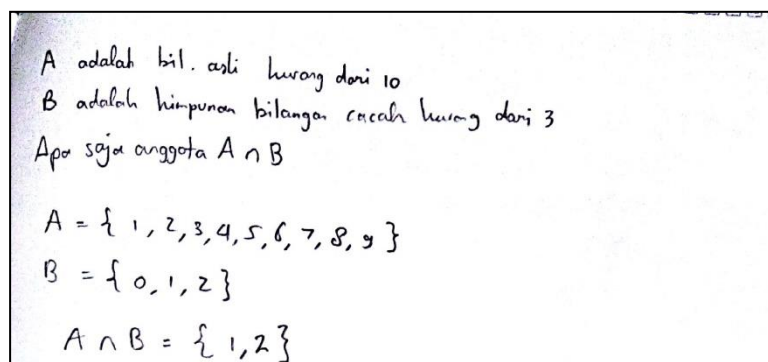 A adalah bil. asli kurang dari 10
B adalah himpunan bilangan cacah kurang dari 3
Apa saja anggota A ∩ B
A = { 1, 2, 3, 4, 5, 6, 7, 8, 9 }
B = { 0, 1, 2 }
A ∩ B = { 1, 2 }